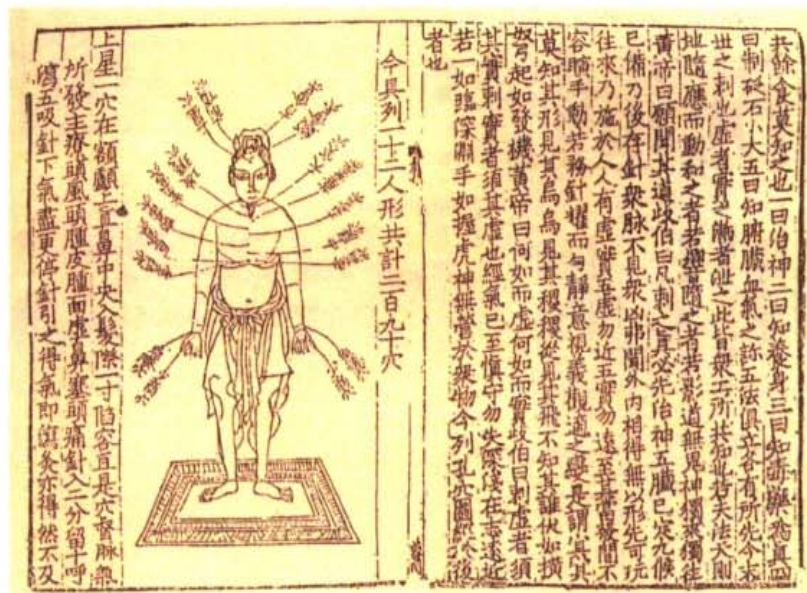 其餘食莫知之也一曰治神二曰知養身三曰知毒藥為真四
曰制砭石小大五曰知腑臟血氣之診五法俱立各有所先今末
世之刺也虛者實之滿者泄之此皆衆工所共知也若夫法天則
地隨應而動和之者若響隨之者若影道無鬼神獨來獨往
黃帝曰願聞其道歧伯曰凡刺之真必先治神五臟已定九候
已備乃後存針衆脉不見衆凶弗聞外內相得無以形先可玩
往來乃施於人人有虛實五虛勿近五實勿遠至其當發間不
容瞚手動若務針耀而勻靜意視義觀適之變是謂冥冥
莫知其形見其烏烏見其稷稷從見其飛不知其誰伏如橫
弩起如發機黃帝曰何如而虛何如而實歧伯曰刺虛者須
其實刺實者須其虛也經氣已至慎守勿失深淺在志遠近
若一如臨深淵手如握虎神無營於衆物今列孔穴圖於後
者也
今具列一十二人形共計二百九十穴
上星一穴在額顱上直鼻中央入髮際一寸陷容豆是穴督脉氣
所發主療頭風頭腫皮腫面虛鼻塞頭痛針入二分留十呼
瀉五吸針下氣盡更停針引之得氣即瀉灸亦得然不及